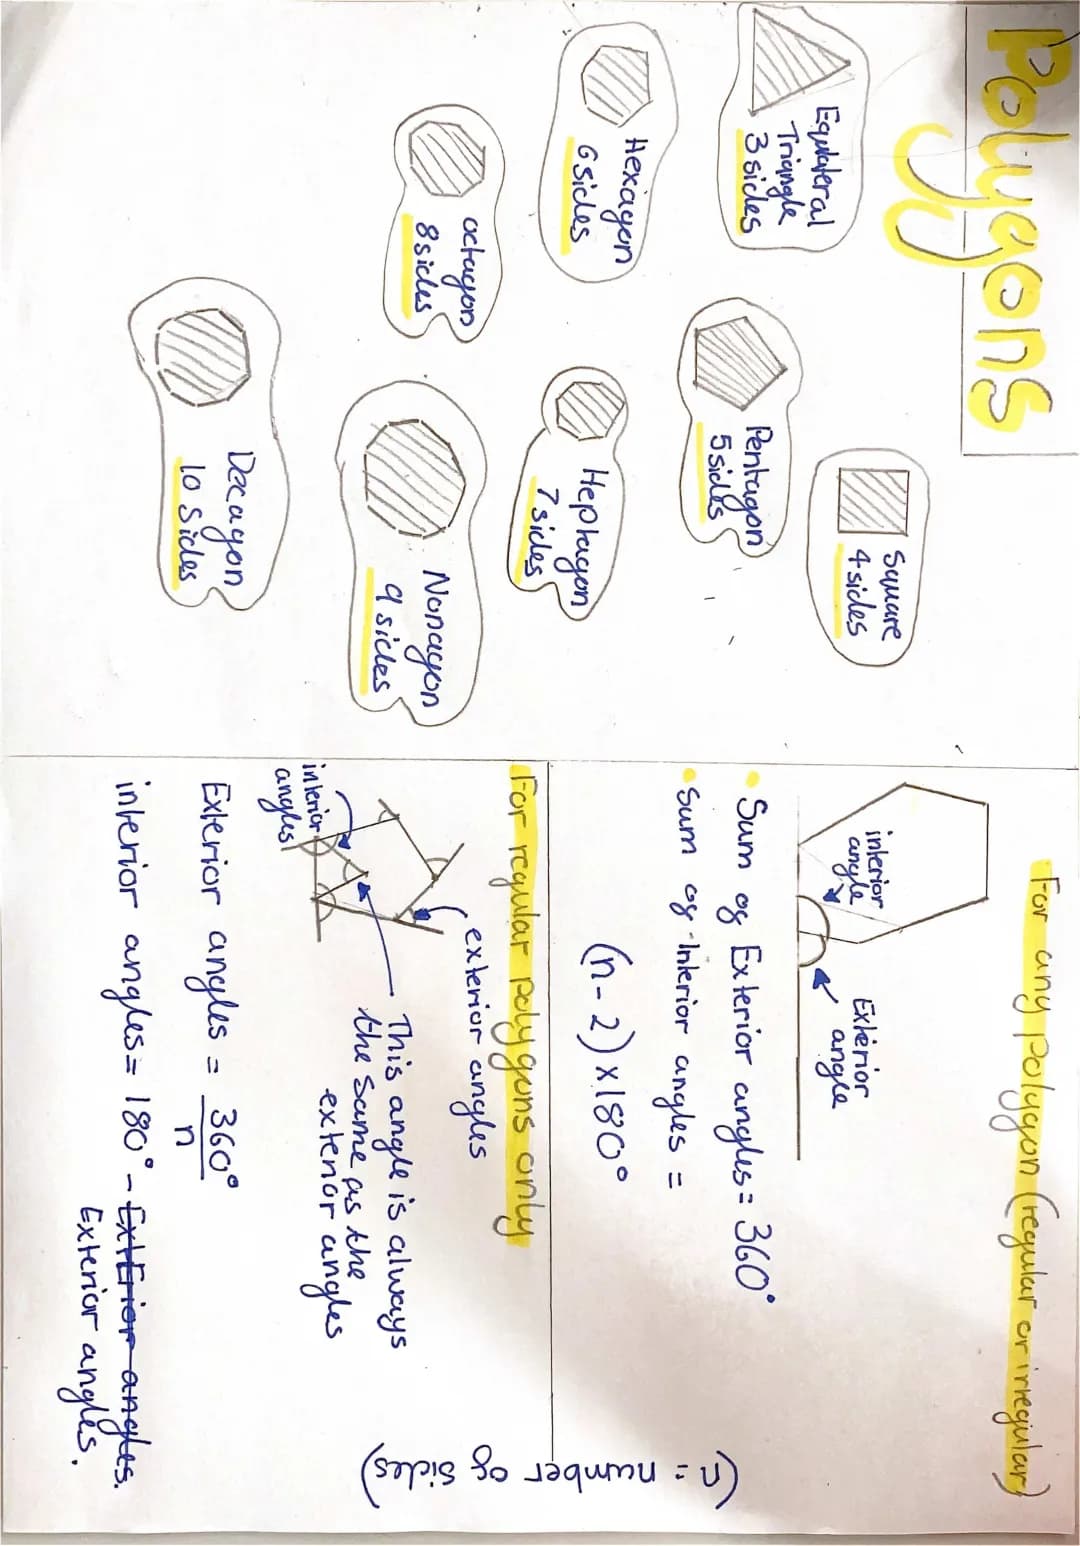 Polygons
Equilateral
Triangle
3 sides
Square
4 sides
Pentagon
5 sides
Hexagon
6 sides
Heptagon
7 sides
octagon
8 sides
Nonagon
9 sides
Decagon
10 sides
For any polygon (regular or irregular)
interior
angle
Exterior
angle
• Sum of Exterior angles = 360°
• Sum of Interior angles =
(n - 2) x 180°
(n = number of sides)
For regular polygons only
exterior angles
interior
angles
This angle is always
the same as the
exterior angles
Exterior angles = 360°
n
interior angles = 180° - Exterior angles.
Exterior angles.